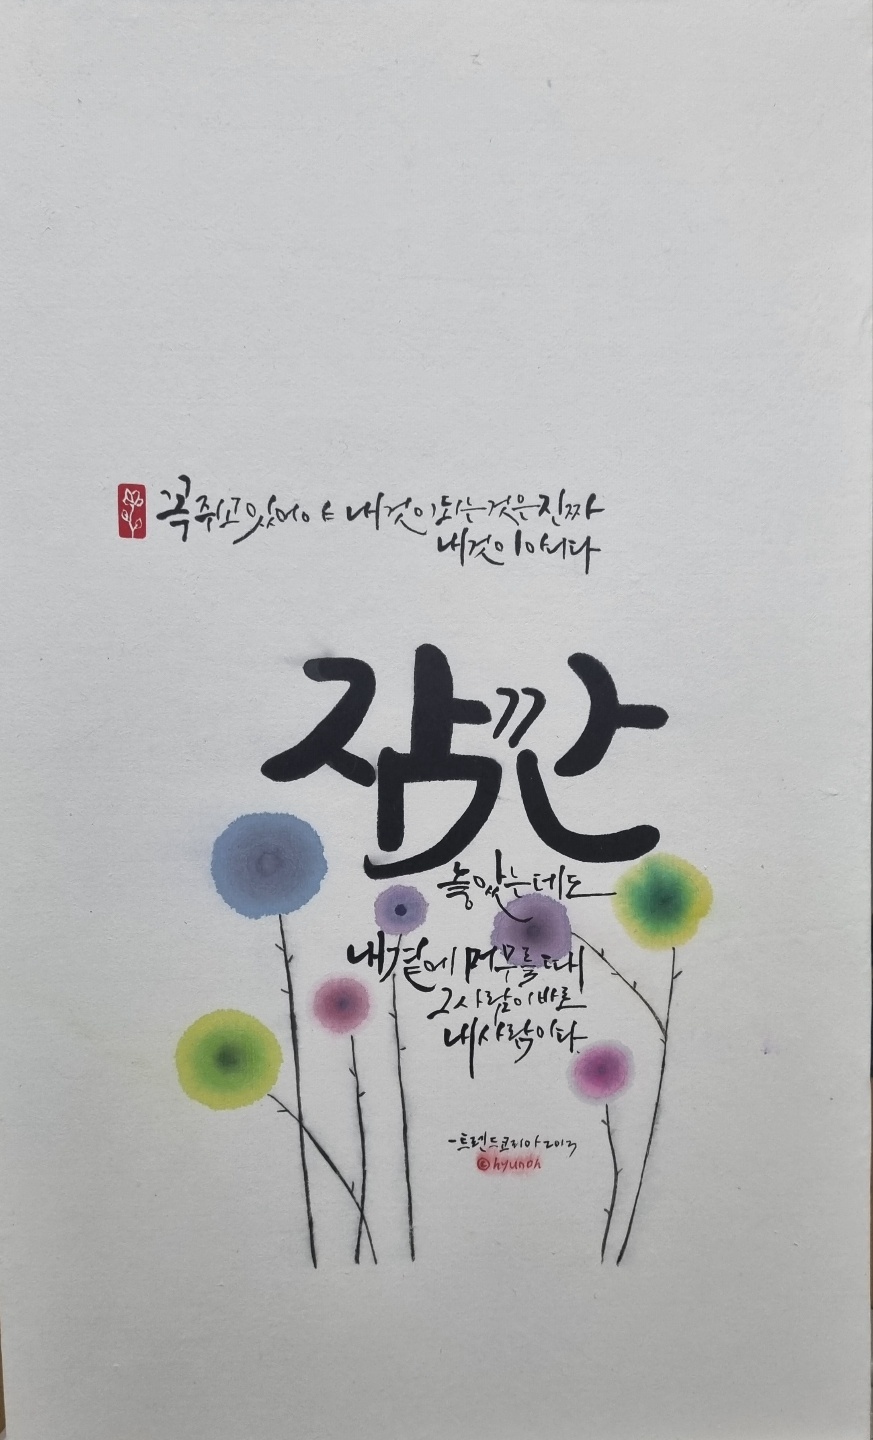 꼭 쥐고 있어야 내것이 되는 것은 진짜
내것이 아니다
잠깐
놓았는데도
내곁에 머무를 때
그 사람이 바로
내사람이다.
-트렌드코리아 2013
©hyunoh